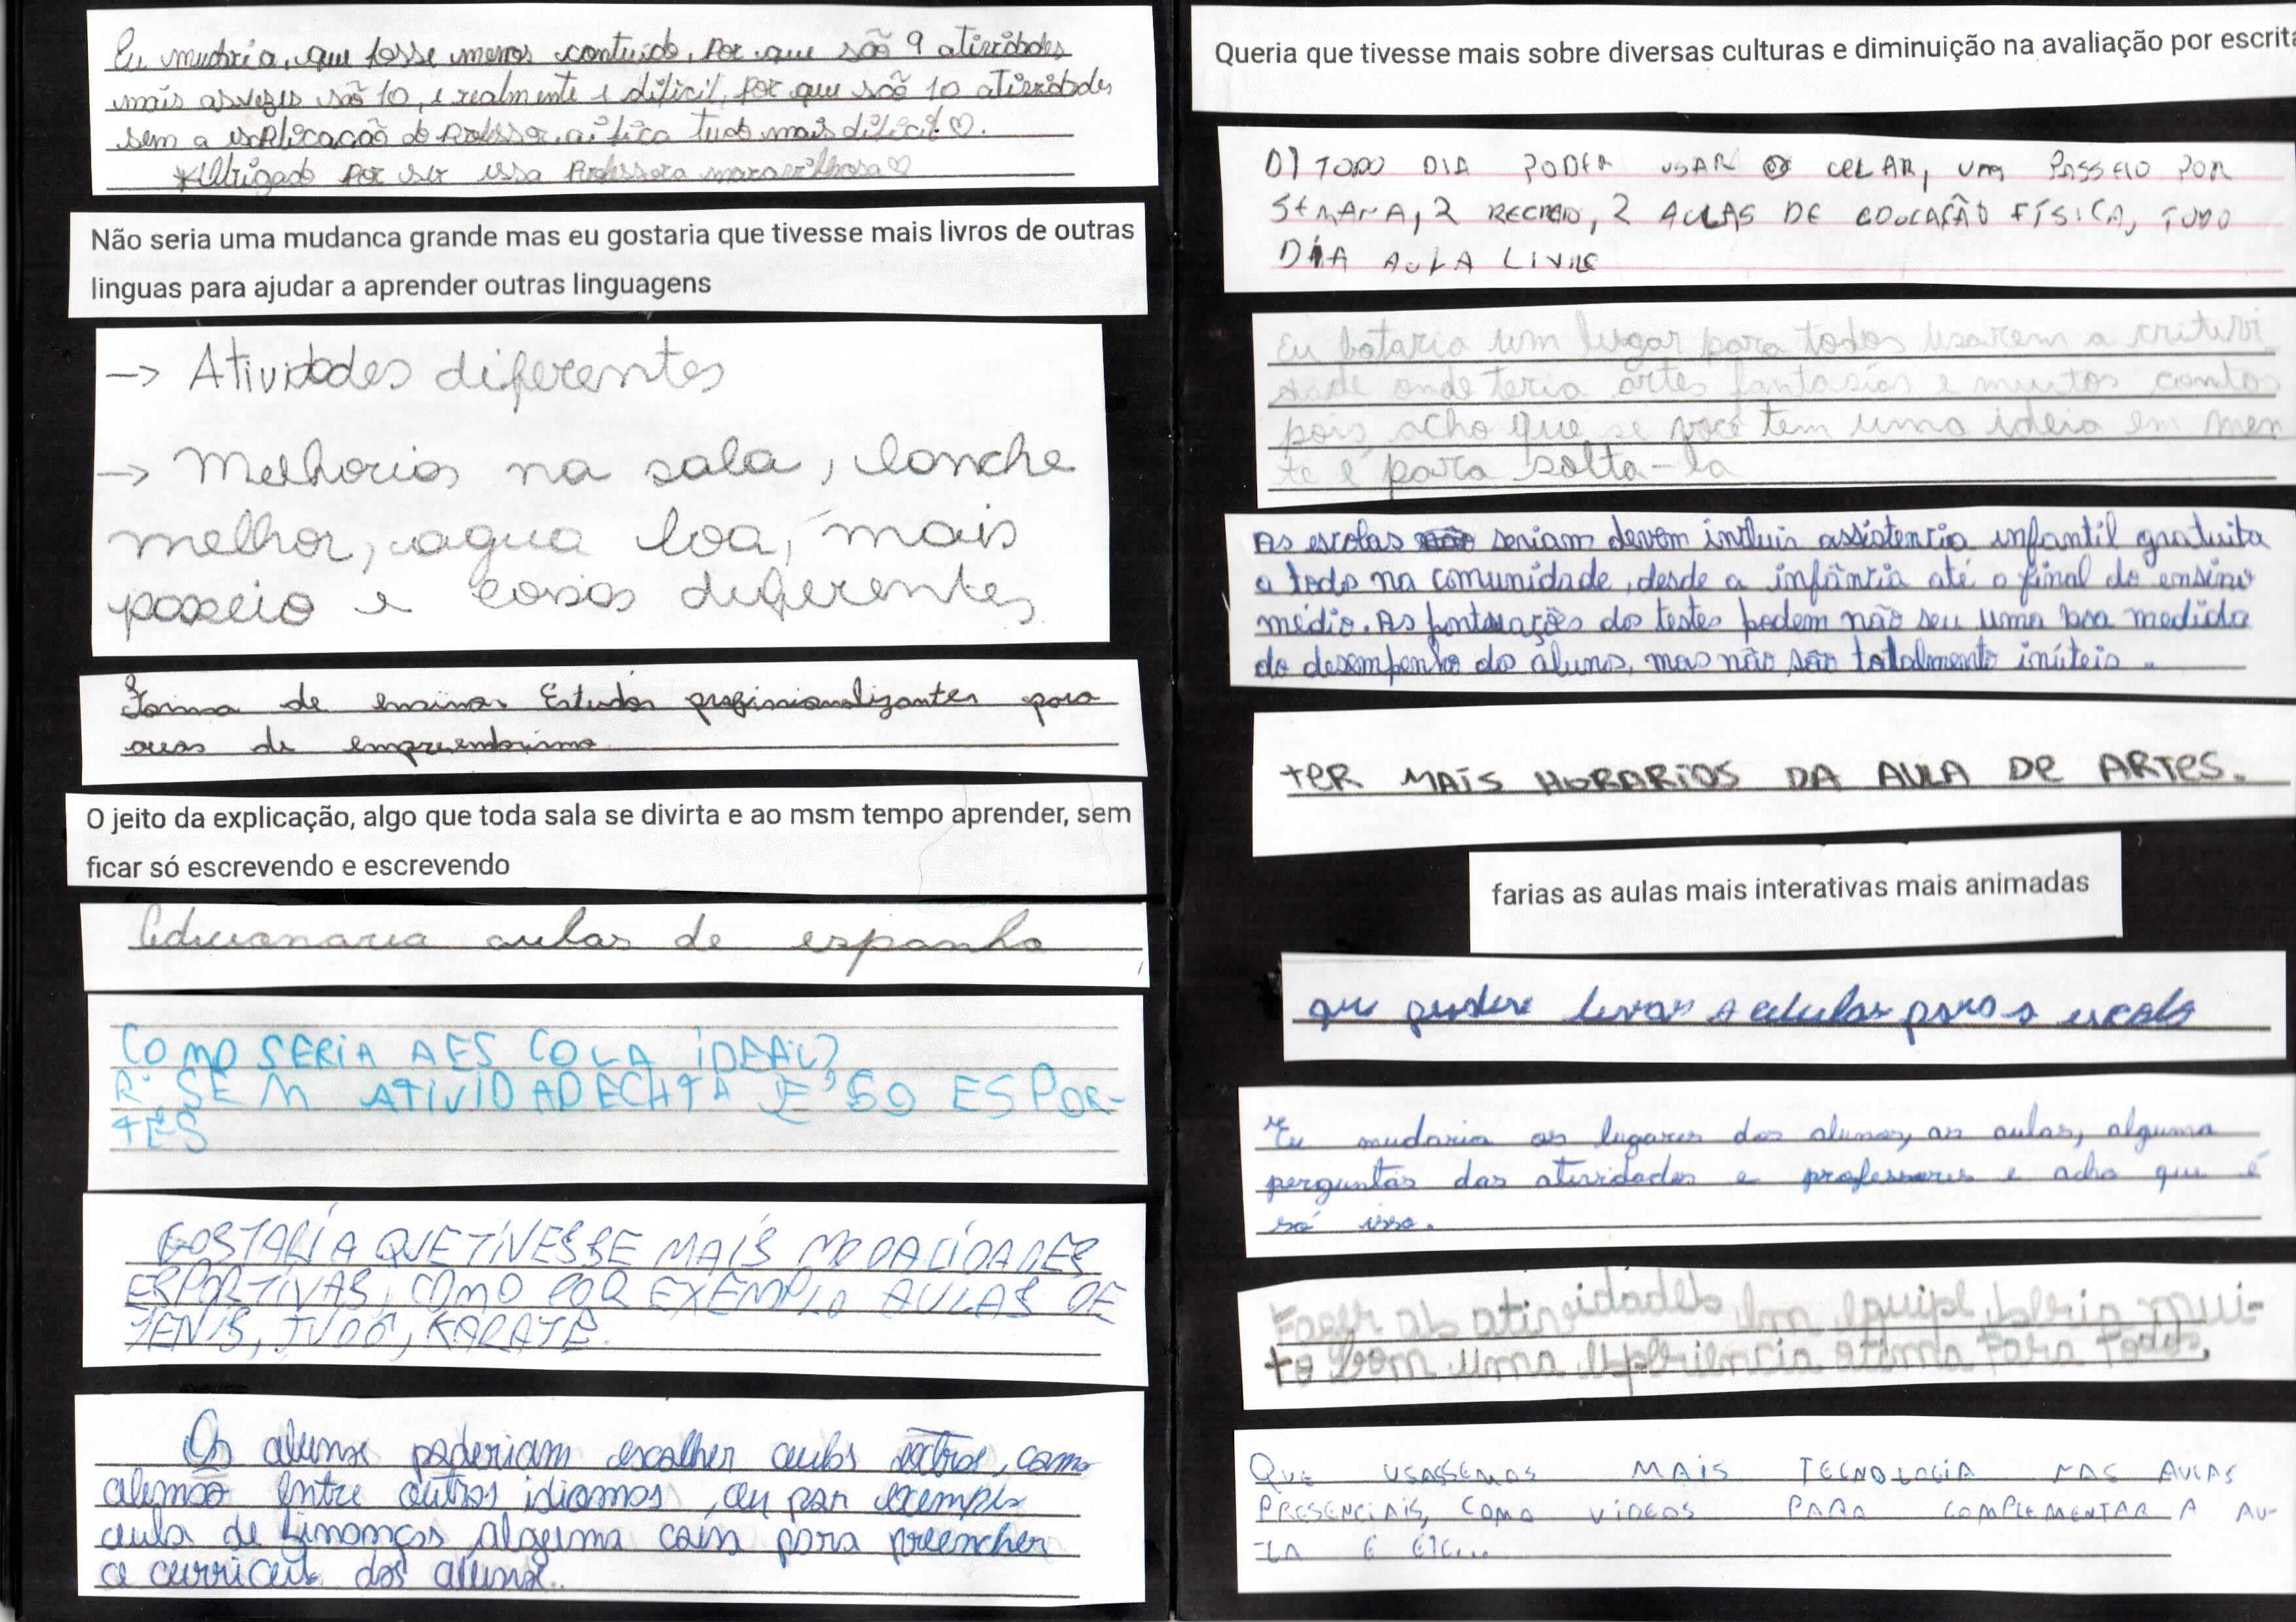 Eu mudaria, que fosse menos contuido, por que são 9 atividades
mais asvezes são 10, e realmente e dificil, por que são 10 atividades
sem a explicação do professor, ai fica tudo mais dificil ♡.
*Obrigado por ser essa professora maravilhosa ♡
Não seria uma mudanca grande mas eu gostaria que tivesse mais livros de outras
linguas para ajudar a aprender outras linguagens
→ Atividades diferentes
→ Melhorias na sala, lanche
melhor, agua boa, mais
passeio e coisas diferentes
Forma de ensinar Estudos profissionalizantes para
areas de
O jeito da explicação, algo que toda sala se divirta e ao msm tempo aprender, sem
ficar só escrevendo e escrevendo
Adicionaria aulas de espanho
COMO SERIA A ES COLA IDEAL?
R: SEM ATIVIDADE CHATA E SO ESPOR-
TES
GOSTARIA QUE TIVESSE MAIS MODALIDADES
ESPORTIVAS, COMO POR EXEMPLO AULAS DE
TENIS, JUDÔ, KARATÊ.
Os alunos poderiam escolher aulas extras, como
alemão entre outros idiomas, ou por exemplo
aula de finanças alguma coisa para preencher
o dos alunos.
Queria que tivesse mais sobre diversas culturas e diminuição na avaliação por escrita
D) TODO DIA PODER USAR O CELAR, UM PASSEIO POR
SEMANA, 2 RECREIO, 2 AULAS DE EDUCAÇÃO FÍSICA, TODO
DIA AULA LIVRE
Eu botaria um lugar para todos usarem a criativi
dade onde teria artes fantasias e muitos contos
pois acho que se você tem uma ideia em men
te é para solta-la
As escolas seriam devem incluir assistencia infantil gratuita
a todo na comunidade, desde a infância até o final do ensino
médio. As pontuações dos testes podem não seu uma boa medida
do desempenho do aluno, mas não são totalmente inúteis.
tER MAIS HORARIOS DA AULA DE ARTES.
farias as aulas mais interativas mais animadas
que pudese levar o celular para a escola
Eu mudaria os lugares dos alunos, as aulas, alguma
perguntas das atividades e professores e acho que é
só isso.
Fazer as atividades em equipe seria mui-
to bom uma experiencia otima para todos.
QUE USASSEMOS MAIS TECNOLOGIA NAS AULAS
PRESENCIAIS, COMO VÍDEOS PARA COMPLEMENTAR A AU-
LA E ETC...